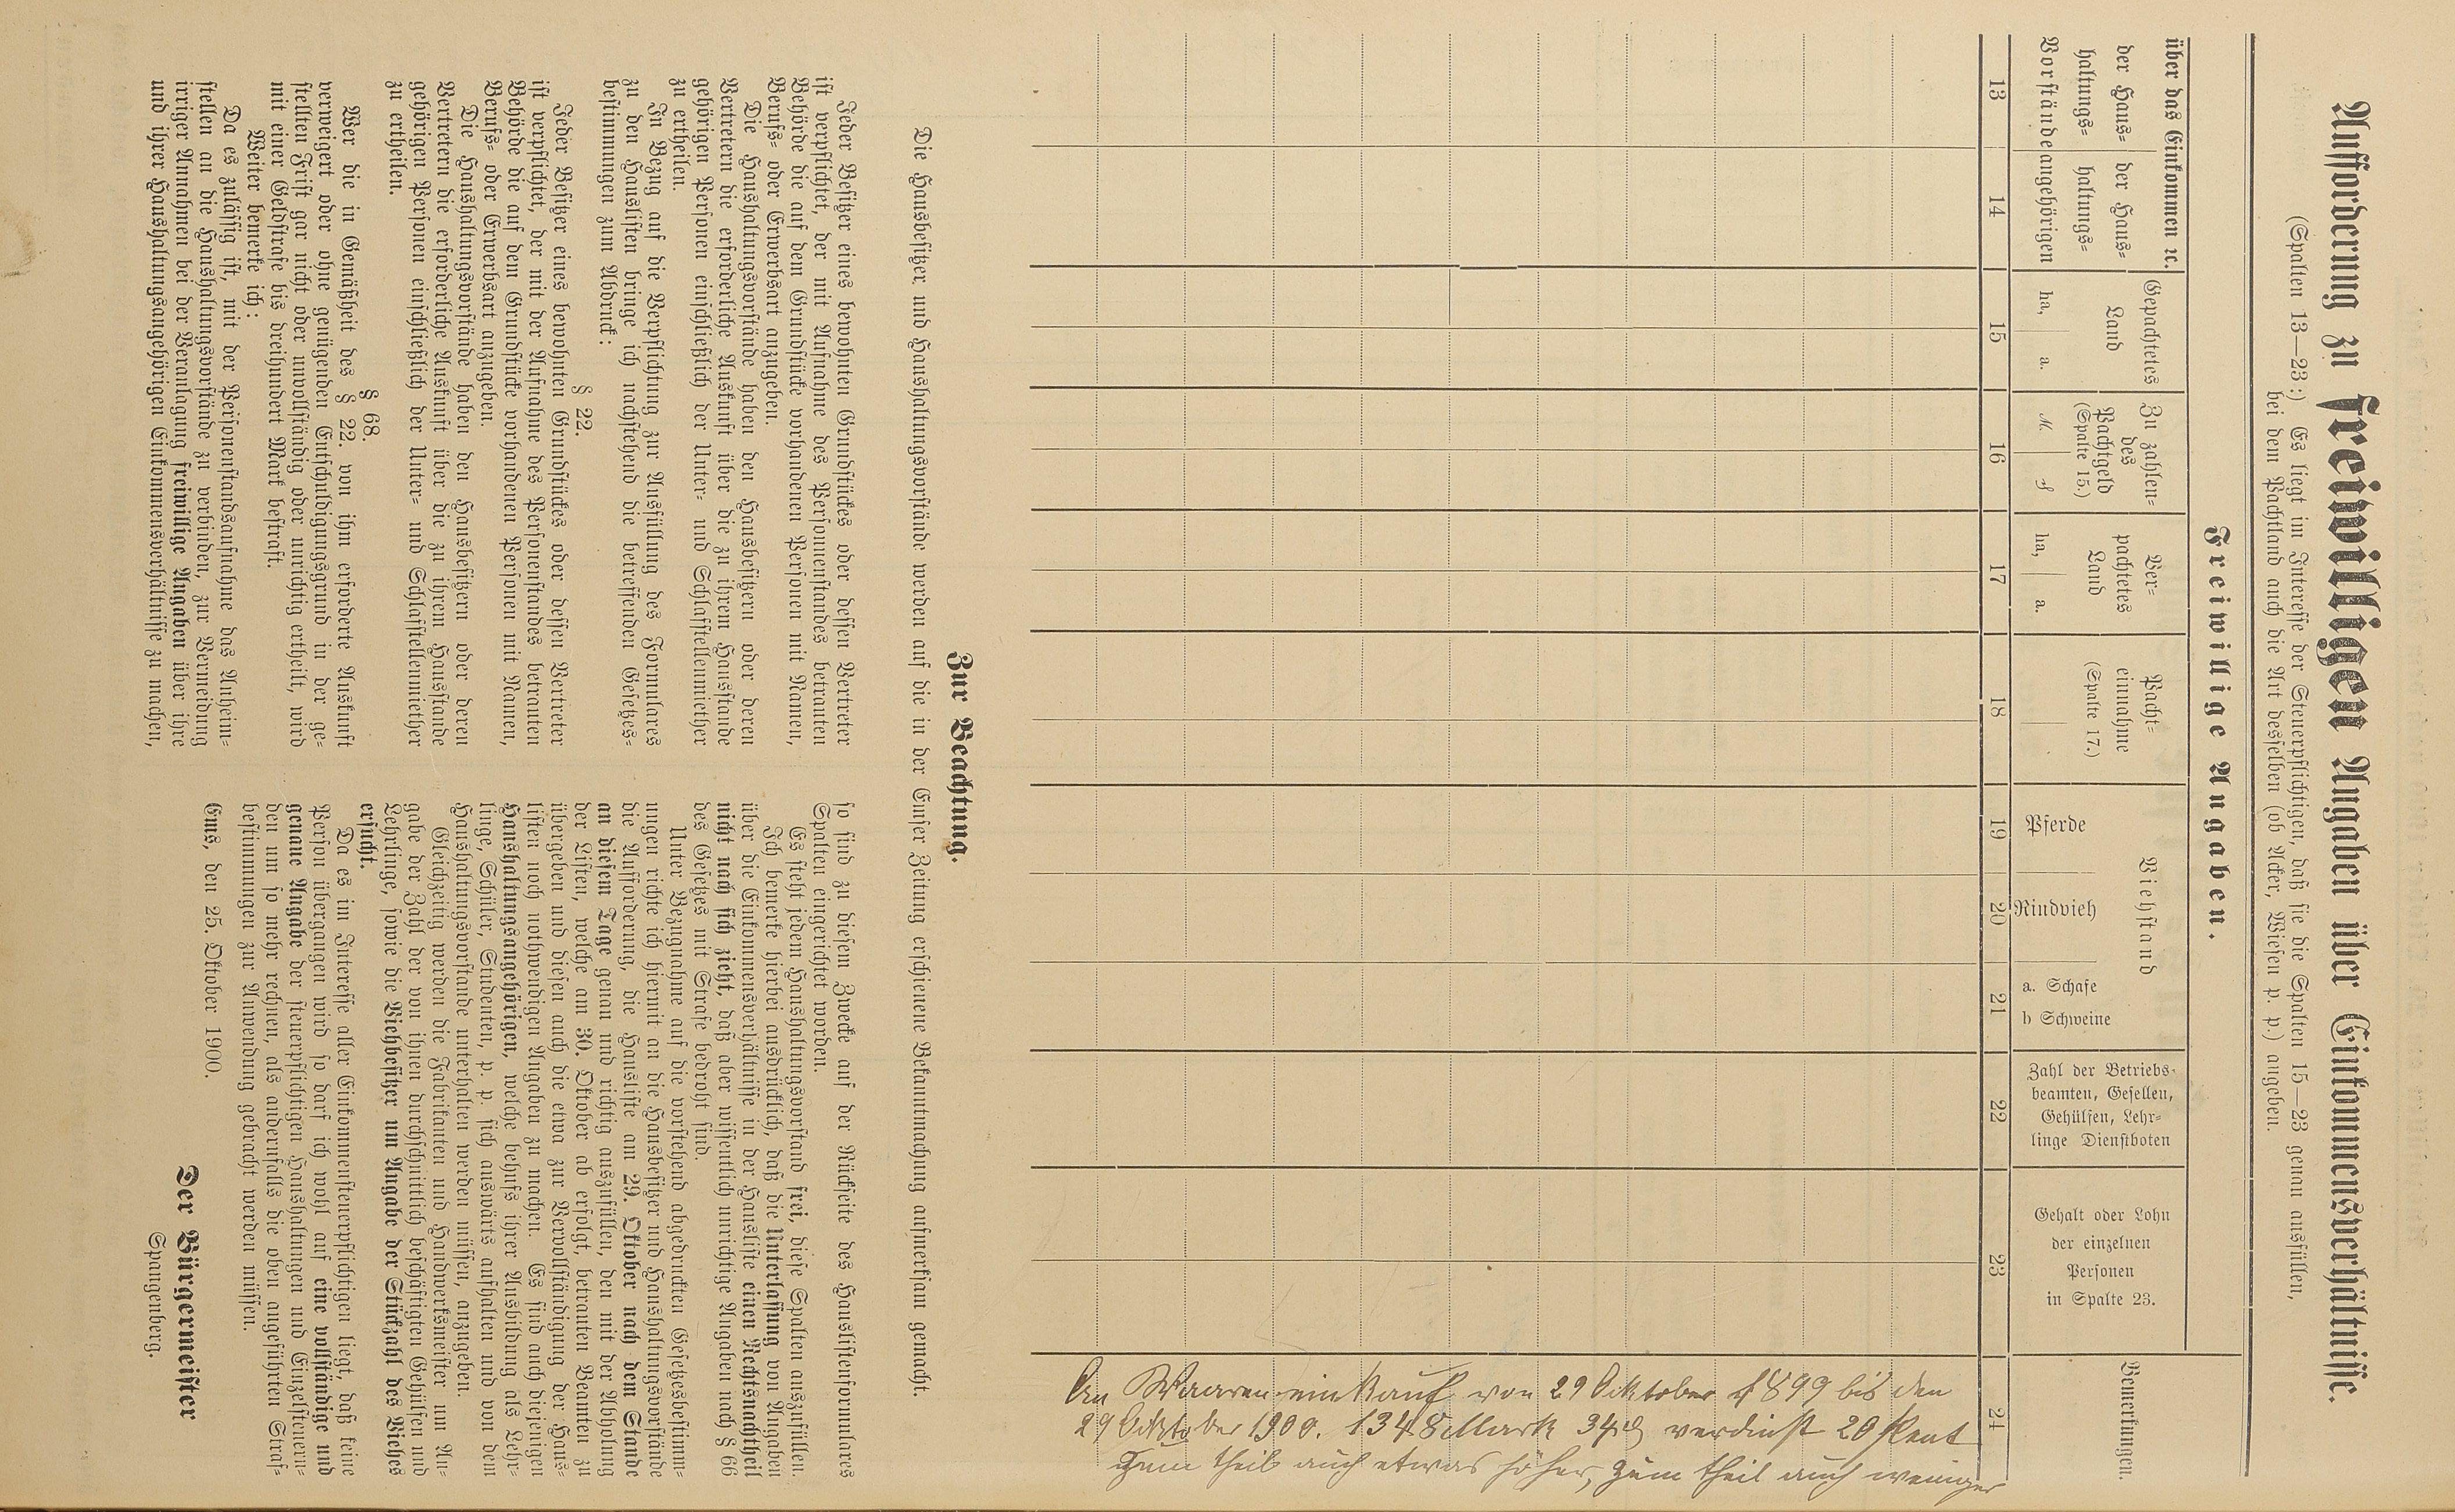 Aufforderung zu freiwilligen Angaben über Einkommensverhältnisse.
(Spalten 13—23:) Es liegt im Interesse der Steuerpflichtigen, daß sie die Spalten 15—23 genau ausfüllen,
bei dem Pachtland auch die Art desselben (ob Acker, Wiesen p. p.) angeben.
Freiwillige Angaben.
über das Einkommen ꝛc.
der Haus-
haltungs-
Vorstände
der Haus-
haltungs-
angehörigen
Gepachtetes
Land
ha, a.
Zu zahlen-
des
Pachtgeld
(Spalte 15.)
M. ₰
Ver-
pachtetes
Land
ha, a.
Pacht-
einnahme
(Spalte 17.)
Viehstand
Pferde
Rindvieh
a. Schafe
b Schweine
Zahl der Betriebs-
beamten, Gesellen,
Gehülfen, Lehr-
linge Dienstboten
Gehalt oder Lohn
der einzelnen
Personen
in Spalte 23.
Bemerkungen.
13 14 15 16 17 18 19 20 21 22 23 24
An Waaren einkauf von 29 Oktober 1899 bis den
29 Oktober 1900. 1348 Mark 34 ₰ verdinst 20 Pzent
zum theil auch etwas höher, zum theil auch weniger
Zur Beachtung.
Die Hausbesitzer und Haushaltungsvorstände werden auf die in der Emser Zeitung erschienene Bekanntmachung aufmerksam gemacht.
Jeder Besitzer eines bewohnten Grundstückes oder dessen Vertreter
ist verpflichtet, der mit Aufnahme des Personenstandes betrauten
Behörde die auf dem Grundstücke vorhandenen Personen mit Namen,
Berufs- oder Erwerbsart anzugeben.
Die Haushaltungsvorstände haben den Hausbesitzern oder deren
Vertretern die erforderliche Auskunft über die zu ihrem Hausstande
gehörigen Personen einschließlich der Unter- und Schlafstellenmiether
zu ertheilen.
In Bezug auf die Verpflichtung zur Ausfüllung des Formulares
zu den Hauslisten bringe ich nachstehend die betreffenden Gesetzes-
bestimmungen zum Abdruck:
§ 22.
Jeder Besitzer eines bewohnten Grundstückes oder dessen Vertreter
ist verpflichtet, der mit der Aufnahme des Personenstandes betrauten
Behörde die auf dem Grundstücke vorhandenen Personen mit Namen,
Berufs- oder Erwerbsart anzugeben.
Die Haushaltungsvorstände haben den Hausbesitzern oder deren
Vertretern die erforderliche Auskunft über die zu ihrem Hausstande
gehörigen Personen einschließlich der Unter- und Schlafstellenmiether
zu ertheilen.
§ 68.
Wer die in Gemäßheit des § 22. von ihm erforderte Auskunft
verweigert oder ohne genügenden Entschuldigungsgrund in der ge-
stellten Frist gar nicht oder unvollständig oder unrichtig ertheilt, wird
mit einer Geldstrafe bis dreihundert Mark bestraft.
Weiter bemerke ich:
Da es zulässig ist, mit der Personenstandsaufnahme das Anheim-
stellen an die Haushaltungsvorstände zu verbinden, zur Vermeidung
irriger Annahmen bei der Veranlagung freiwillige Angaben über ihre
und ihrer Haushaltungsangehörigen Einkommensverhältnisse zu machen,
so sind zu diesem Zwecke auf der Rückseite des Hauslistenformulares
Spalten eingerichtet worden.
Es steht jedem Haushaltungsvorstand frei, diese Spalten auszufüllen.
Ich bemerke hierbei ausdrücklich, daß die Unterlassung von Angaben
über die Einkommensverhältnisse in der Hausliste einen Rechtsnachtheil
nicht nach sich zieht, daß aber wissentlich unrichtige Angaben nach § 66
des Gesetzes mit Strafe bedroht sind.
Unter Bezugnahme auf die vorstehend abgedruckten Gesetzesbestimm-
ungen richte ich hiermit an die Hausbesitzer und Haushaltungsvorstände
die Aufforderung, die Hausliste am 29. Oktober nach dem Stande
an diesem Tage genau und richtig auszufüllen, den mit der Abholung
der Listen, welche am 30. Oktober ab erfolgt, betrauten Beamten zu
übergeben und diesen auch die etwa zur Vervollständigung der Haus-
listen noch nothwendigen Angaben zu machen. Es sind auch diejenigen
Haushaltungsangehörigen, welche behufs ihrer Ausbildung als Lehr-
linge, Schüler, Studenten, p. p. sich auswärts aufhalten und von dem
Haushaltungsvorstande unterhalten werden müssen, anzugeben.
Gleichzeitig werden die Fabrikanten und Handwerksmeister um An-
gabe der Zahl der von ihnen durchschnittlich beschäftigten Gehülfen und
Lehrlinge, sowie die Viehbesitzer um Angabe der Stückzahl des Viehes
ersucht.
Da es im Interesse aller Einkommensteuerpflichtigen liegt, daß keine
Person übergangen wird so darf ich wohl auf eine vollständige und
genaue Angabe der steuerpflichtigen Haushaltungen und Einzelsteuern-
den um so mehr rechnen, als andernfalls die oben angeführten Straf-
bestimmungen zur Anwendung gebracht werden müssen.
Ems, den 25. Oktober 1900.
Der Bürgermeister
Spangenberg.